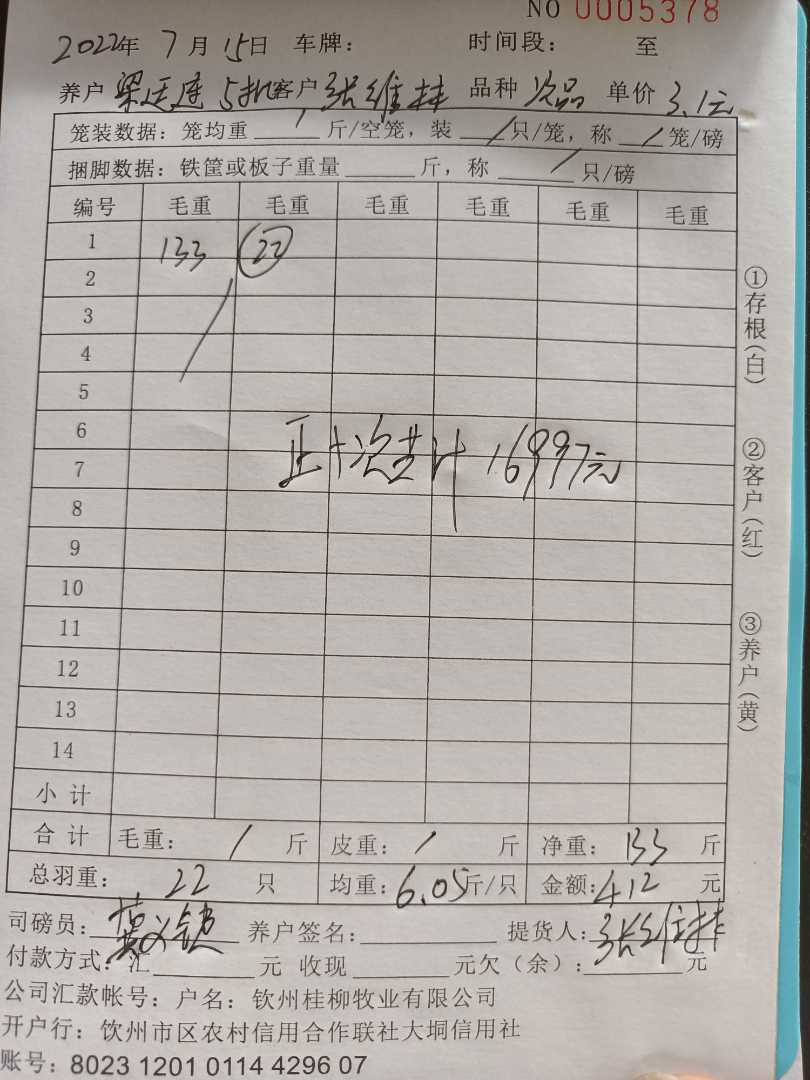 NO 0005378
2022年 7月 15日 车牌： 时间段： 至
养户 梁廷连 5批 客户 张维林 品种 次品 单价 3.1元
笼装数据：笼均重 / 斤/空笼，装 / 只/笼，称 / 笼/磅
捆脚数据：铁筐或板子重量 斤，称 / 只/磅
编号 毛重 毛重 毛重 毛重 毛重 毛重
1 133 22
2
3
4
5
6
正+次共计 16997元
7
8
9
10
11
12
13
14
小计
合计 毛重： / 斤 皮重： / 斤 净重： 133 斤
总羽重： 22 只 均重： 6.05 斤/只 金额： 412 元
司磅员： 养户签名： 提货人： 张维林
付款方式：汇 元 收现 元欠（余）： 元
公司汇款帐号：户名：钦州桂柳牧业有限公司
开户行：钦州市区农村信用合作联社大垌信用社
账号：8023 1201 0114 4296 07
①存根（白）
②客户（红）
③养户（黄）